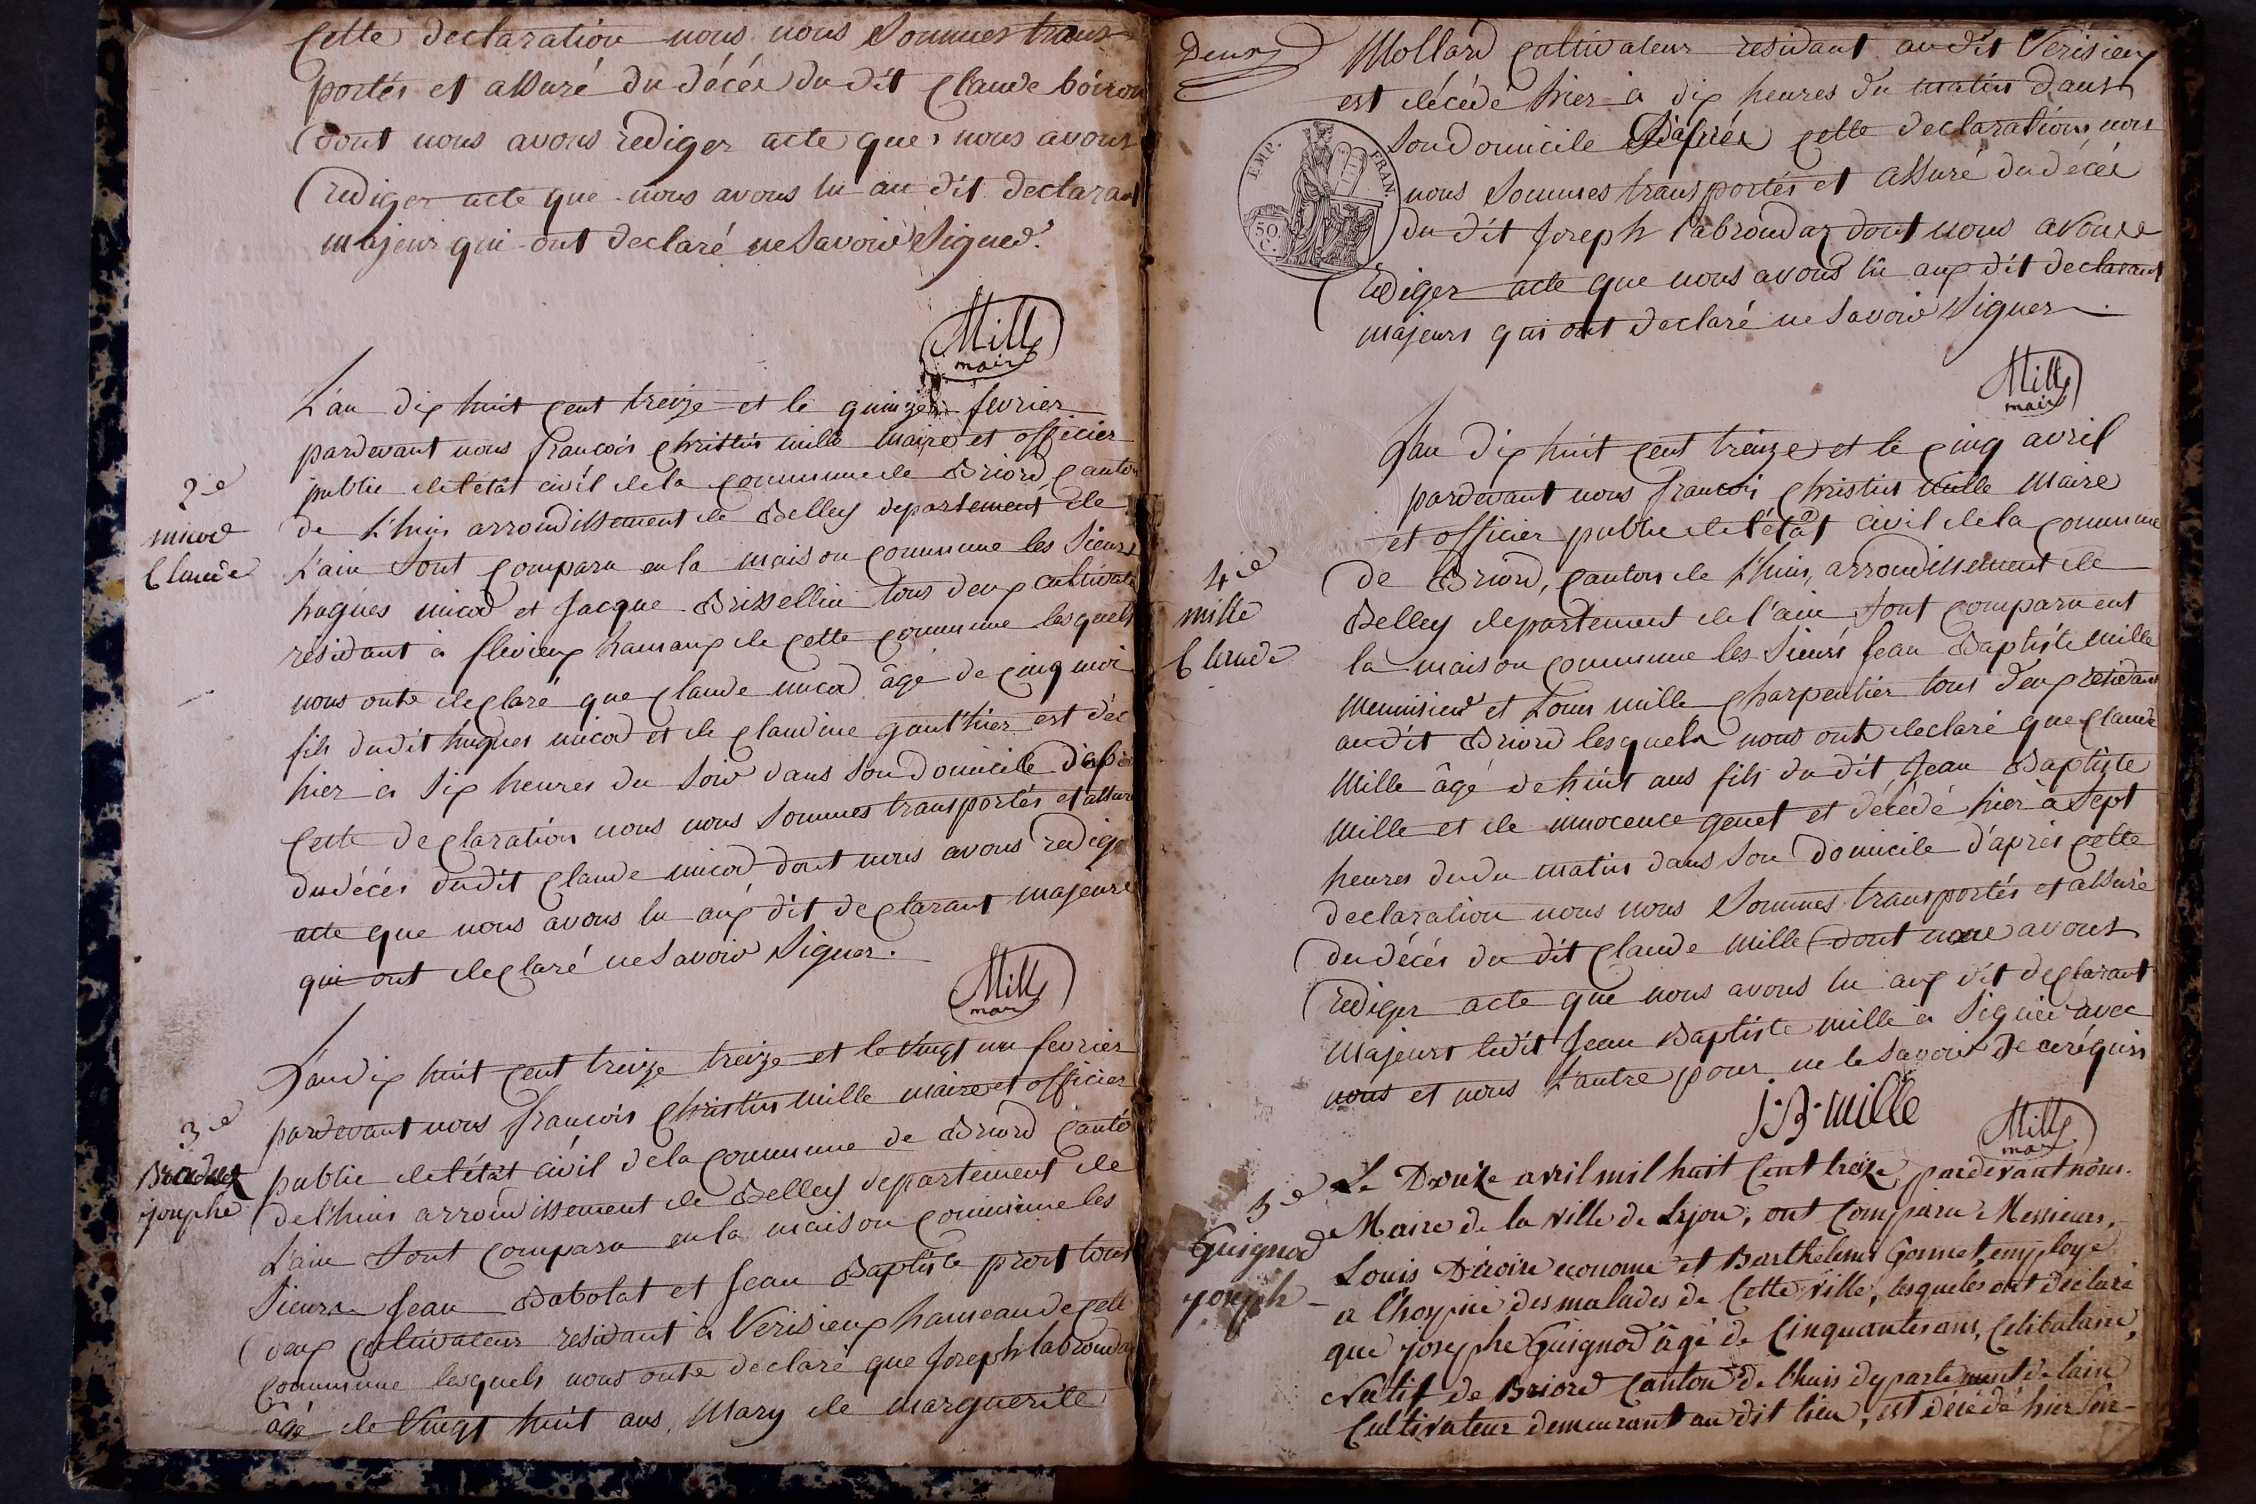 Cette declaration nous nous Sommes trans
portés et assuré du décés du dit Claude boiron
dont nous avons rediger acte que nous avons
rediger acte que nous avons lu au dit declarant
majeur qui ont declaré ne Savoir Signer.
Mille
maire
L'an dix huit cent treize et le quinze fevrier
pardevant nous françois Christin mille maire et officier
public de l'état civil de la commune de Briord canton
2e
de L'huis arrondissement de Belley departement de
micod
L'ain Sont comparu en la maison commune les Sieurs
Claude
hugues micod et Jacque Brissellin tous deux cultivate
residant à flevieux hamaux de cette commune lesquels
nous onte declaré que Claude micod âgé de cinq moi
fils dudit hugues micod et de Claudine gauthier est déc
hier à Six heures du Soir dans Son Domicile d'aprés
Cette declaration nous nous Sommes transportés et assuré
du décés dudit Claude micod dont nous avons redige
acte que nous avons lu aux dit declarant majeurs
qui ont declaré ne Savoir Signer.
Mille
mair
L'an dix huit cent treize treize et le vingt un fevrier
pardevant nous françois Christin mille maire et officier
3e
public de l'état civil de la commune de Briord canto
josephe
de l'huis arrondissement de Belley departement de
L'ain Sont comparu en la maison commune les
Sieurs Jean Babolat et Jean Baptiste prost tous
deux cultivateur residant à Verisieux hameau de cette
commune lesquels nous onte declaré que Joseph labrouda
âgé de Vingt huit ans, Mary de marguerite
Deux
Mollard Cultivateur residant au dit Verisieux
est décédé hier à dix heures du matin dans
Son Domicile D'aprés cette declaration nous
EMP. FRAN.
nous Sommes transportés et assuré du décés
50 C.
du dit Joseph labroudaz dont nous avons
rédiger acte que nous avons lu aux dit declarant
majeurs qui ont declaré ne Savoir Signer.
Mille
maire
L'an dix huit cent treize et le cinq avril
pardevant nous françois Christin Mille Maire
et officier public de l'état civil de la commune
4e
de Briord, canton de L'huis, arrondissement de
mille
Belley departement de l'ain Sont comparu ent
Claude
la maison commune les Sieurs Jean Baptiste mille
Menuisier et Louis mille Charpentier tous deux residant
audit Briord lesquels nous ont declaré que Claude
Mille âgé de huit ans fils du dit Jean Baptiste
Mille et de innocence genet et décédé hier à Sept
heures du du matin dans Son Domicile d'après cette
declaration nous nous Sommes transportés et assuré
du décés du dit Claude Mille dont nous avons
rediger acte que nous avons lu aux dit declarant
Majeurs ledit Jean Baptiste mille à Signé avec
nous et nous L'autre pour ne le Savoir De ce réquis
J. B. mille
Mille
mair
5e
Le Douze avril mil huit Cent treize pardevant nous
Guignod
Maire de la ville de Lyon, ont Comparu Messieurs
Joseph
Louis Econome et Barthelemi Gonnet, employé
a l'hospice des malades de Cette ville, lesquels ont déclaré
que josephe Guignod âgé de Cinquante ans, Celibataire,
Natif de Briord Canton de l'huis departement de l'ain
Cultivateur demeurant au dit lieu, est décédé hier Soir